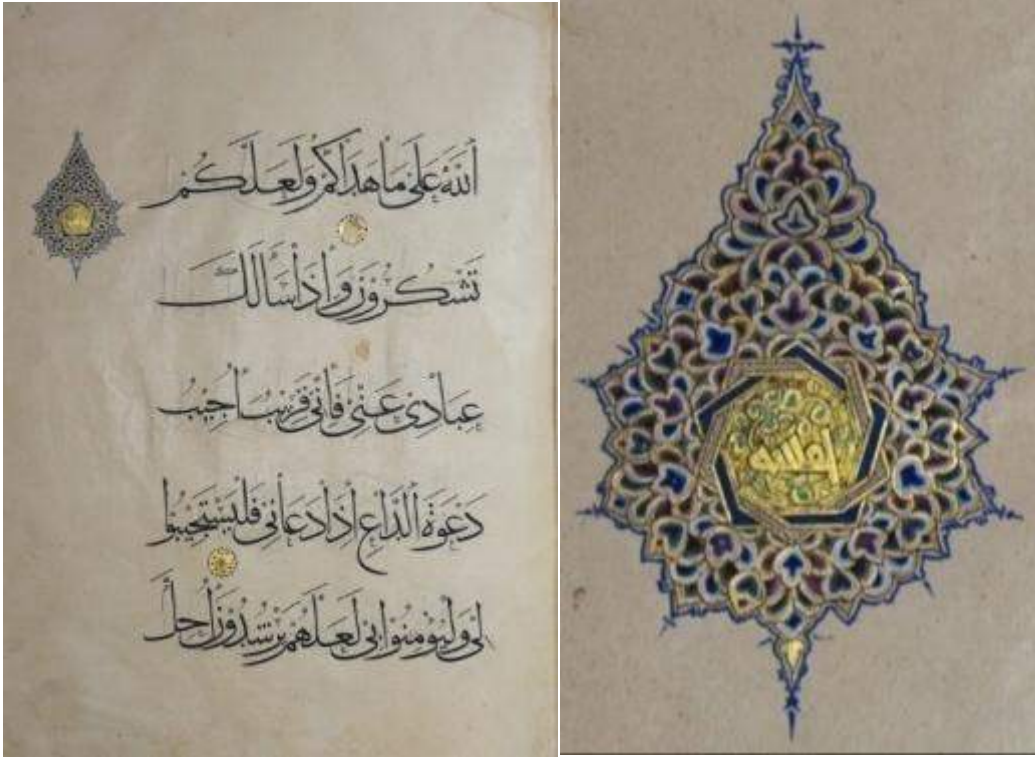 اللَّهَ عَلَى مَا هَدَاكُمْ وَلَعَلَّكُمْ
تَشْكُرُونَ وَإِذَا سَأَلَكَ
عِبَادِى عَنِّى فَإِنِّى قَرِيبٌ أُجِيبُ
دَعْوَةَ الدَّاعِ إِذَا دَعَانِى فَلْيَسْتَجِيبُوا
لِى وَلْيُؤْمِنُوا بِى لَعَلَّهُمْ يَرْشُدُونَ أُحِلَّ